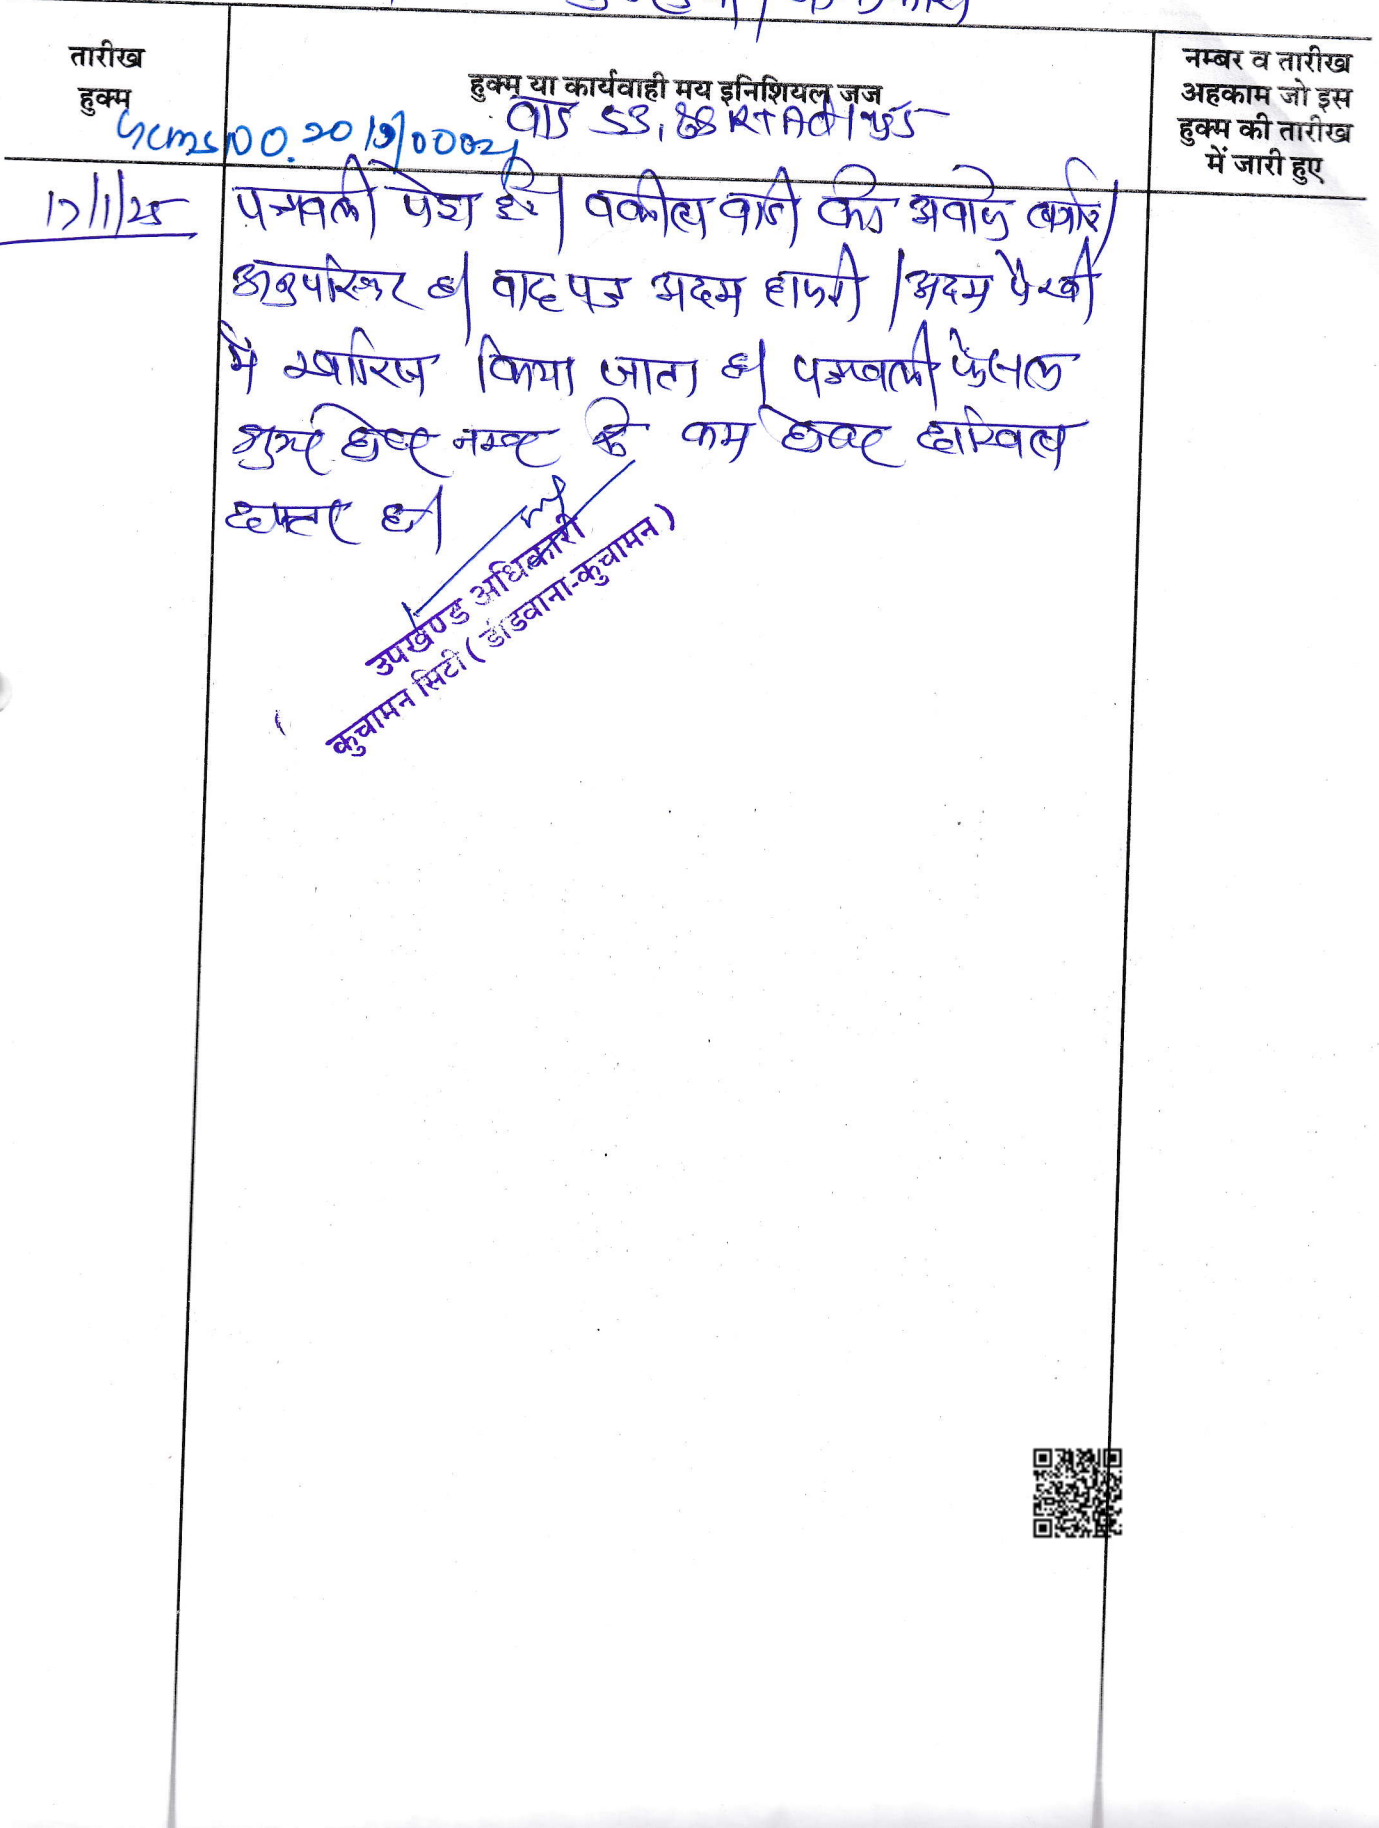 तारीख
हुक्म
हुक्म या कार्यवाही मय इनिशियल जज
नम्बर व तारीख
अहकाम जो इस
हुक्म की तारीख
में जारी हुए
वाद 53, 88 RTAct
GCMS NO. 2019/0002
17/1/25 पत्रावली पेश हुई। वकील वादी को अवाज लगाई
अनुपस्थित है। वाद पत्र अदम हाजरी / अदम पैरवी
में खारिज किया जाता है। पत्रावली फैसल
शुमार होकर नम्बर से कम होकर दाखिल
दफ्तर हो।
उपखण्ड अधिकारी
कुचामन सिटी ( डीडवाना-कुचामन )